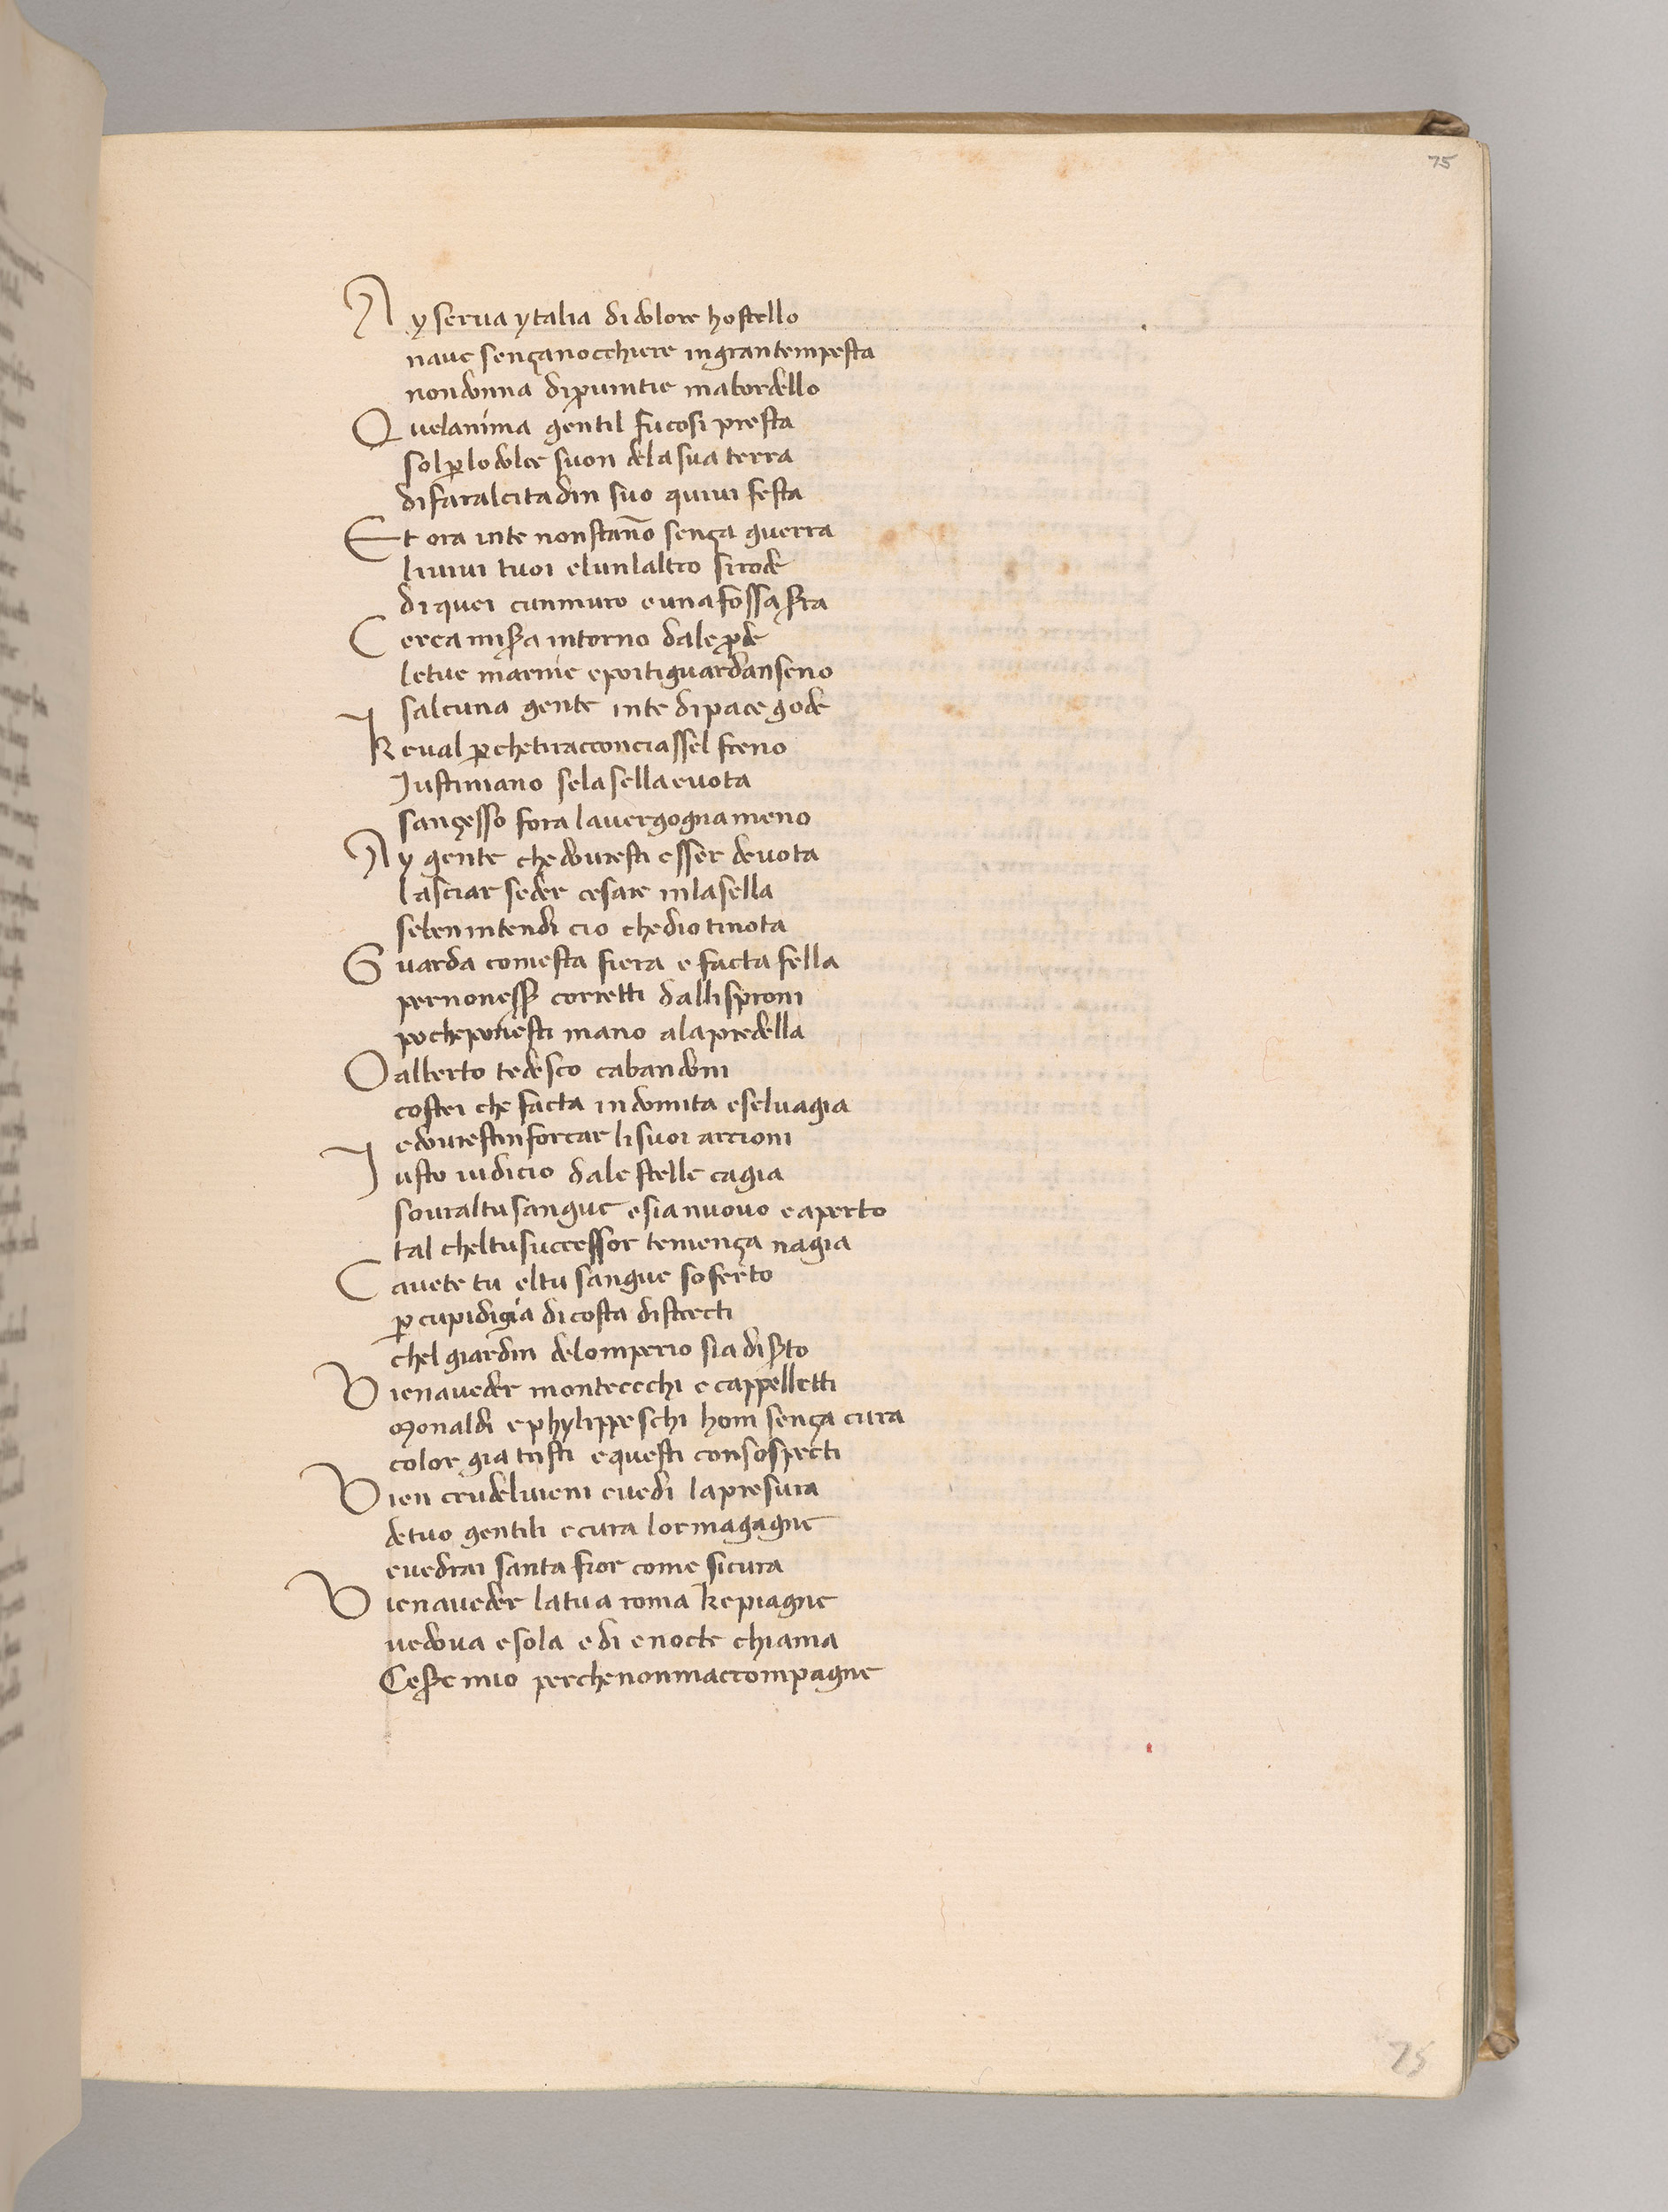 75
Ay serua ytalia di dolore hostello
naue sença nocchiere in gran tempesta
non donna di prouintie ma bordello
Quelanima gentil fu cosi presta
sol p lo dolce suon dela sua terra
di far al citadin suo quiui festa
Et ora in te non stano sença guerra
li uiui tuoi e lun laltro si rode
di quei cun muro e una fossa sra
Cerca misa intorno dale prode
le tue marine e poi ti guarda n seno
salcuna gente in te di pace gode
Ke ual p che ti racconciassel freno
Iustiniano se la sella e uota
sançesso fora la uergogna meno
Ay gente che douresti esser deuota
lasciar seder cesare in la sella
se ben intendi cio che dio ti nota
Guarda comesta fiera e facta fella
per non ess corretti dalli sproni
po che ponesti mano ala predella
O alberto tedesco cabandoni
costei che facta indomita e seluagia
e douresti nforcar li suoi arcioni
Iusto iudicio dale stelle cagia
soural tu sangue e sia nuouo e aperto
tal chel tu successor temença nagia
Cauete tu el tu sangue soferto
p cupidigia di costa distrecti
chel giardin delo mperio sia disto
Vien a ueder montecchi e cappelletti
Monaldi e phylippeschi hom sença cura
color gia tristi e questi con sospecti
Vien crudel uieni e uedi la presura
de tuo gentili e cura lor magagne
e uedrai santa fior come sicura
Vien a ueder la tua roma ke piagne
uedoua e sola e di e nocte chiama
Cesre mio perche non maccompagne
75